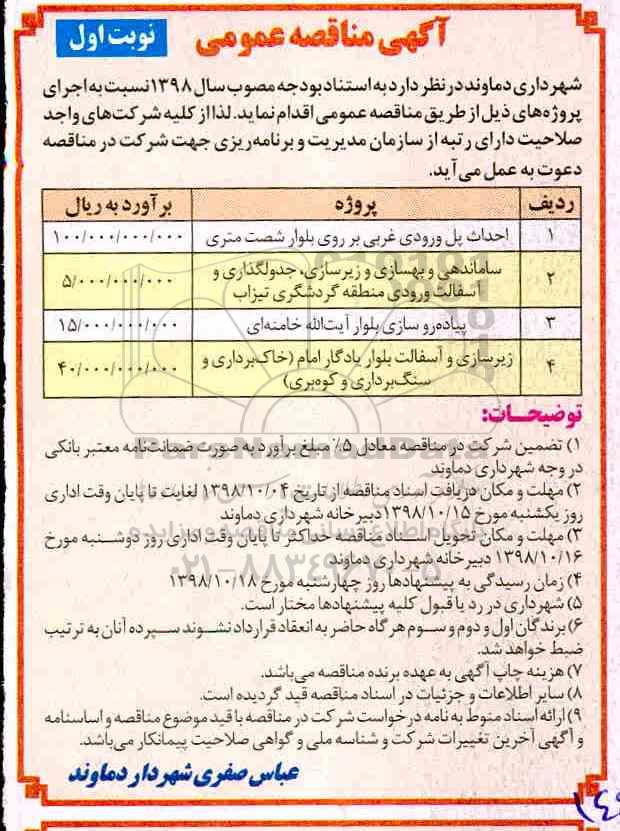 آگهی مناقصه عمومی
نوبت اول
شهرداری دماوند در نظر دارد به استناد بودجه مصوب سال ۱۳۹۸ نسبت به اجرای
پروژه‌های ذیل از طریق مناقصه عمومی اقدام نماید. لذا از کلیه شرکت‌های واجد
صلاحیت دارای رتبه از سازمان مدیریت و برنامه‌ریزی جهت شرکت در مناقصه
دعوت به عمل می‌آید.
ردیف پروژه برآورد به ریال
۱ احداث پل ورودی غربی بر روی بلوار شصت متری ۱۰۰/۰۰۰/۰۰۰/۰۰۰
۲ ساماندهی و بهسازی و زیرسازی، جدولگذاری و
آسفالت ورودی منطقه گردشگری تیزاب ۵/۰۰۰/۰۰۰/۰۰۰
۳ پیاده‌رو سازی بلوار آیت‌الله خامنه‌ای ۱۵/۰۰۰/۰۰۰/۰۰۰
۴ زیرسازی و آسفالت بلوار یادگار امام (خاک‌برداری و
سنگ‌برداری و کوه‌بری) ۴۰/۰۰۰/۰۰۰/۰۰۰
توضیحـات:
۱) تضمین شرکت در مناقصه معادل ۵٪ مبلغ برآورد به صورت ضمانت‌نامه معتبر بانکی
در وجه شهرداری دماوند
۲) مهلت و مکان دریافت اسناد مناقصه از تاریخ ۱۳۹۸/۱۰/۰۴ لغایت تا پایان وقت اداری
روز یکشنبه مورخ ۱۳۹۸/۱۰/۱۵ دبیرخانه شهرداری دماوند
۳) مهلت و مکان تحویل اسناد مناقصه حداکثر تا پایان وقت اداری روز دوشنبه مورخ
۱۳۹۸/۱۰/۱۶ دبیرخانه شهرداری دماوند
۴) زمان رسیدگی به پیشنهادها روز چهارشنبه مورخ ۱۳۹۸/۱۰/۱۸
۵) شهرداری در رد یا قبول کلیه پیشنهادها مختار است.
۶) برندگان اول و دوم و سوم هرگاه حاضر به انعقاد قرارداد نشوند سپرده آنان به ترتیب
ضبط خواهد شد.
۷) هزینه چاپ آگهی به عهده برنده مناقصه می‌باشد.
۸) سایر اطلاعات و جزئیات در اسناد مناقصه قید گردیده است.
۹) ارائه اسناد منوط به نامه درخواست شرکت در مناقصه با قید موضوع مناقصه و اساسنامه
و آگهی آخرین تغییرات شرکت و شناسه ملی و گواهی صلاحیت پیمانکار می‌باشد.
عباس صفری شهردار دماوند
ParsNamadData